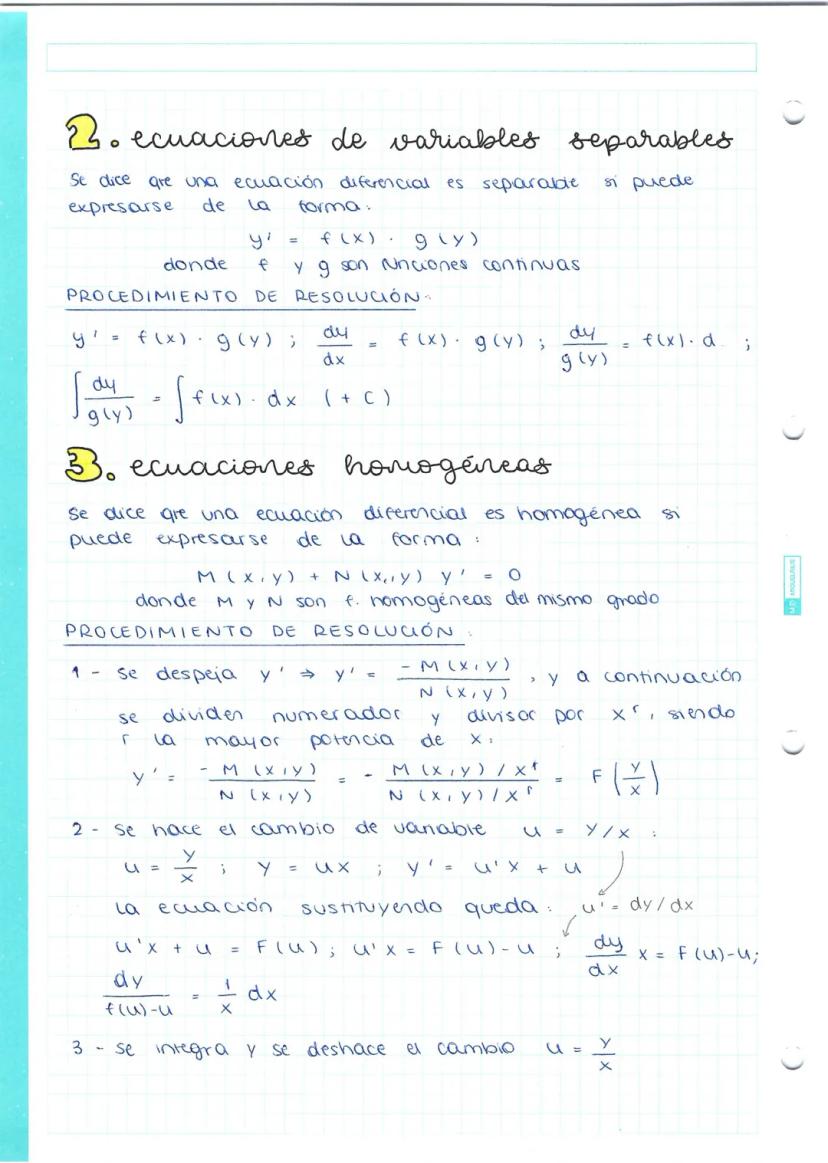 2. ecuaciones de variables separables
Se dice que una ecuación diferencial es separable si puede
expresarse de la forma:
y' = f(x) · g(y)
donde f y g son funciones continuas
PROCEDIMIENTO DE RESOLUCIÓN:
y' = f(x) · g(y) ; dy/dx = f(x) · g(y) ; dy/g(y) = f(x) · d ;
∫ dy/g(y) = ∫ f(x) · dx (+ C)
3. ecuaciones homogéneas
Se dice que una ecuación diferencial es homogénea si
puede expresarse de la forma :
M(x,y) + N(x,y) y' = 0
donde M y N son f. homogéneas del mismo grado
PROCEDIMIENTO DE RESOLUCIÓN :
1 - Se despeja y' ⇒ y' = -M(x,y)/N(x,y) , y a continuación
se dividen numerador y divisor por xʳ, siendo
r la mayor potencia de x:
y' = -M(x,y)/N(x,y) = - M(x,y)/xʳ / N(x,y)/xʳ = F(y/x)
2 - Se hace el cambio de variable u = y/x :
u = y/x ; y = ux ; y' = u'x + u
La ecuación sustituyendo queda: u' = dy/dx
u'x + u = F(u) ; u'x = F(u)-u ; dy/dx x = F(u)-u;
dy/f(u)-u = 1/x dx
3 - Se integra y se deshace el cambio u = y/x